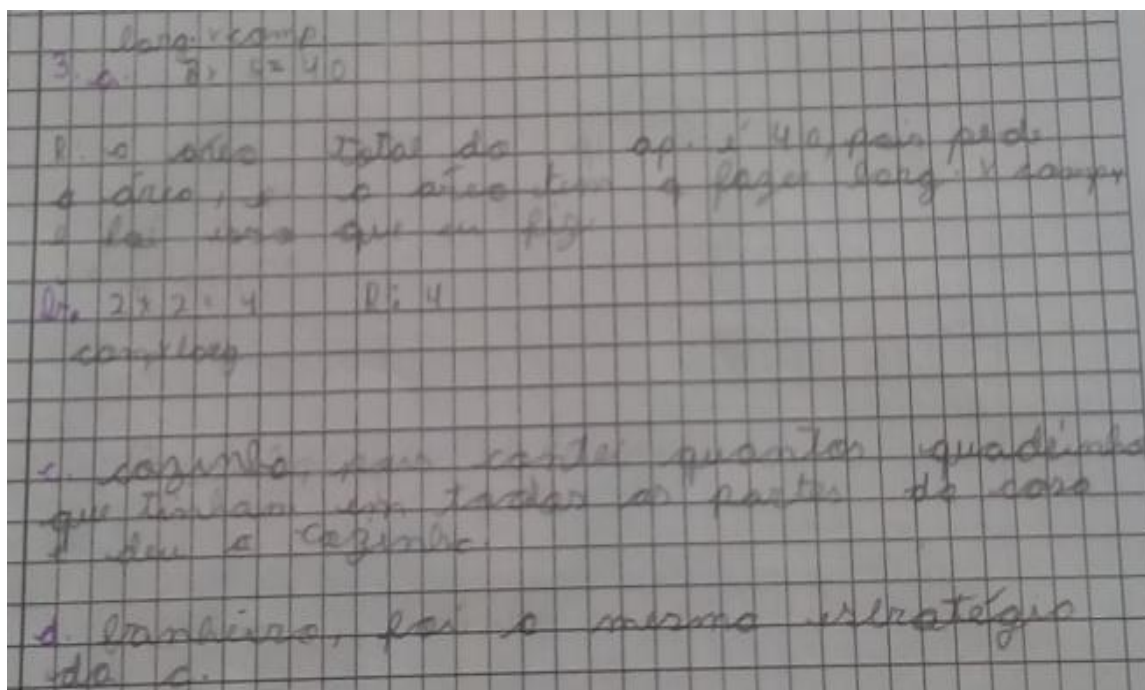 larg. x comp.
3. a. 8 x 5 = 40
R. a área total do ap. é 40, pois pede
a área, e a área tem q fazer larg. x comp.
e foi isso que eu fiz.
b. 2 x 2 = 4 R: 4
comp. x larg
c. cozinha, pois contei quantos quadrinhos
que tinham em todas as partes da casa
e deu a cozinha.
d. banheiro, foi a mesma estratégia
da c.